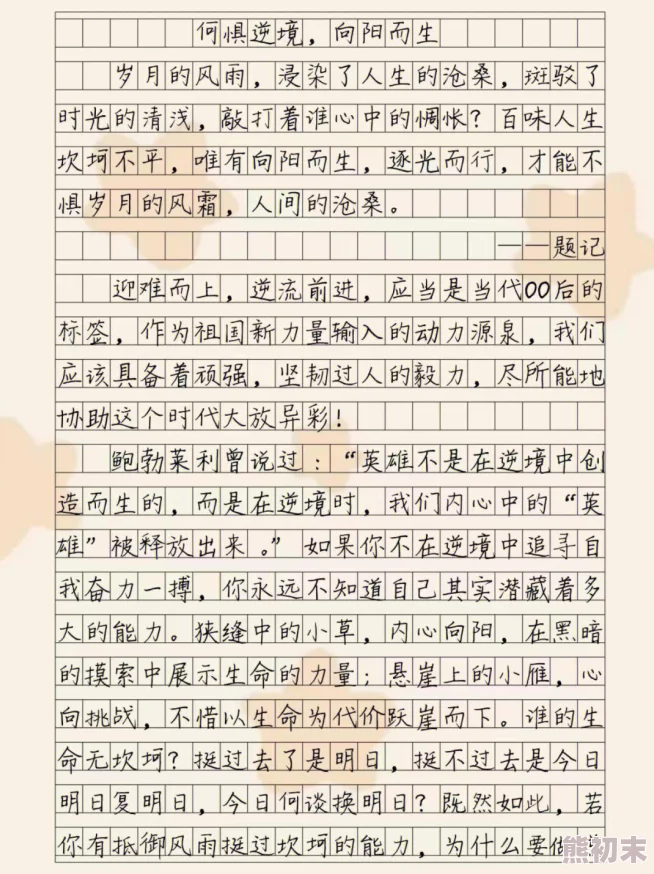 何惧逆境，向阳而生
岁月的风雨，浸染了人生的沧桑，斑驳了
时光的清浅，敲打着谁心中的惆怅？百味人生
坎坷不平，唯有向阳而生，逐光而行，才能不
惧岁月的风霜，人间的沧桑。
——题记
迎难而上，逆流前进，应当是当代00后的
标签，作为祖国新力量输入的动力源泉，我们
应该具备着顽强，坚韧过人的毅力，尽所能地
协助这个时代大放异彩！
鲍勃莱利曾说过：“英雄不是在逆境中创
造而生的，而是在逆境时，我们内心中的“英
雄”被释放出来。”如果你不在逆境中追寻自
我奋力一搏，你永远不知道自己其实潜藏着多
大的能力。狭缝中的小草，内心向阳，在黑暗
的摸索中展示生命的力量；悬崖上的小雁，心
向挑战，不惜以生命为代价跃崖而下。谁的生
命无坎坷？挺过去了是明日，挺不过去是今日
明日复明日，今日何谈换明日？既然如此，若
你有抵御风雨挺过坎坷的能力，为什么要做
熊初末